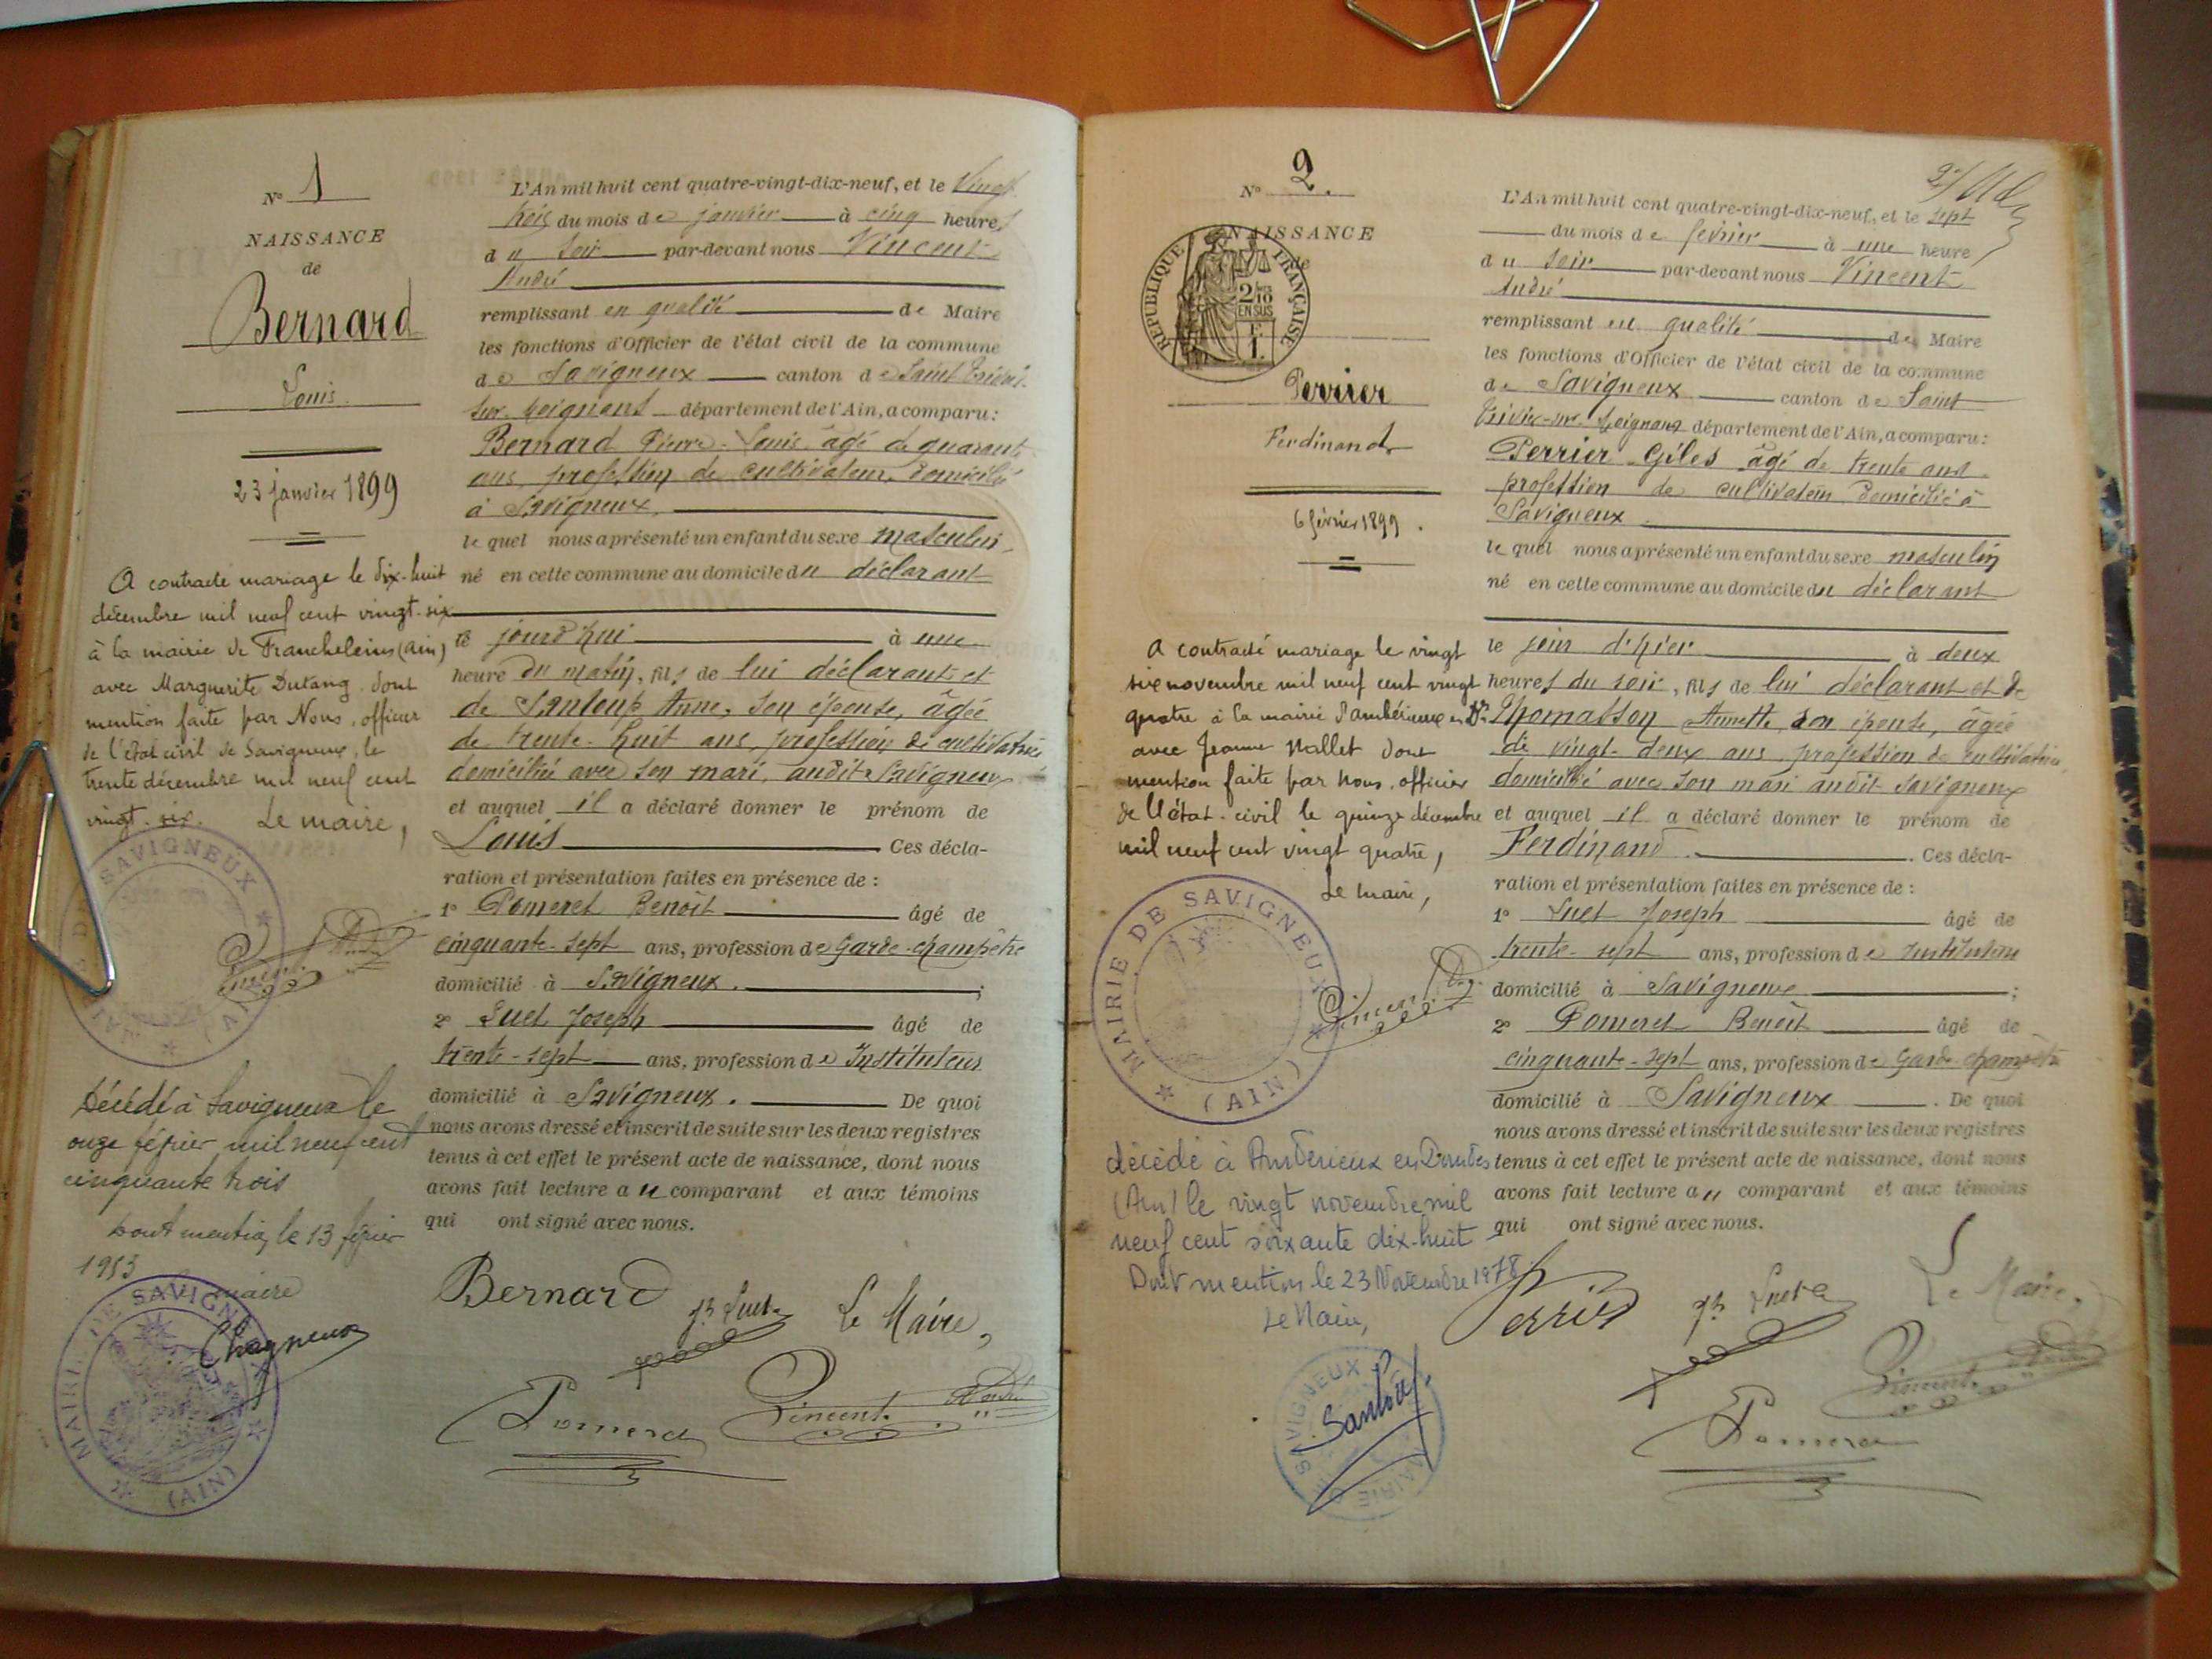 N° 1
NAISSANCE
de
Bernard
Louis
23 janvier 1899
A contracté mariage le dix-huit
décembre mil neuf cent vingt-six
à la mairie de Francheleins (ain)
avec Marguerite Dutang dont
mention faite par Nous, officier
de l'état civil de Savigneux, le
trente décembre mil neuf cent
vingt-six. Le maire,
MAIRIE DE SAVIGNEUX (AIN)
Décédé à Savigneux le
onze février mil neuf cent
cinquante trois
Dont mention le 13 février
1953
Le maire
Chagneux
MAIRIE DE SAVIGNEUX (AIN)
L'An mil huit cent quatre-vingt-dix-neuf, et le vingt
trois du mois de janvier à cinq heures
du soir par-devant nous Vincent
André
remplissant en qualité de Maire
les fonctions d'Officier de l'état civil de la commune
de Savigneux canton de Saint Trivier
sur Moignans département de l'Ain, a comparu :
Bernard Pierre-Louis âgé de quarante
ans, profession de cultivateur, domicilié
à Savigneux.
le quel nous a présenté un enfant du sexe masculin,
né en cette commune au domicile du déclarant
le jourd'hui à une
heure du matin, fils de lui déclarant et
de Sanloup Anne, son épouse, âgée
de trente-huit ans, profession de cultivatrice
domiciliée avec son mari, audit Savigneux
et auquel il a déclaré donner le prénom de
Louis Ces décla-
ration et présentation faites en présence de :
1° Pomeret Benoît âgé de
cinquante-sept ans, profession de Garde-champêtre
domicilié à Savigneux. ;
2° Suet Joseph âgé de
trente-sept ans, profession de Instituteur
domicilié à Savigneux. De quoi
nous avons dressé et inscrit de suite sur les deux registres
tenus à cet effet le présent acte de naissance, dont nous
avons fait lecture au comparant et aux témoins
qui ont signé avec nous.
Bernard Jh Suet Le Maire,
Pomeret Vincent André
N° 2.
NAISSANCE
de
RÉPUBLIQUE FRANÇAISE
2/10
EN SUS
Perrier
Ferdinand
6 février 1899.
A contracté mariage le vingt
six novembre mil neuf cent vingt
quatre à la mairie d'ambérieux en Dbes
avec Jeanne Mallet dont
mention faite par nous, officier
de l'état-civil le quinze décembre
mil neuf cent vingt quatre,
Le maire,
MAIRIE DE SAVIGNEUX (AIN)
décédé à Ambérieux en Dombes
(Ain) le vingt novembre mil
neuf cent soixante dix-huit
Dont mention le 23 Novembre 1978
Le Maire,
MAIRIE DE SAVIGNEUX
L'An mil huit cent quatre-vingt-dix-neuf, et le sept
du mois de février à une heure
du soir par-devant nous Vincent
André
remplissant en qualité de Maire
les fonctions d'Officier de l'état civil de la commune
de Savigneux canton de Saint
Trivier-sur-Moignans département de l'Ain, a comparu :
Perrier Giles âgé de trente ans
profession de cultivateur domicilié à
Savigneux.
le quel nous a présenté un enfant du sexe masculin
né en cette commune au domicile du déclarant
le jour d'hier à deux
heures du soir, fils de lui déclarant et de
Thomasson Annette, son épouse, âgée
de vingt-deux ans, profession de cultivatrice,
domicilié avec son mari audit Savigneux
et auquel il a déclaré donner le prénom de
Ferdinand. Ces décla-
ration et présentation faites en présence de :
1° Suet Joseph âgé de
trente-sept ans, profession de Instituteur
domicilié à Savigneux ;
2° Pomeret Benoît âgé de
cinquante-sept ans, profession de Garde champêtre
domicilié à Savigneux. De quoi
nous avons dressé et inscrit de suite sur les deux registres
tenus à cet effet le présent acte de naissance, dont nous
avons fait lecture au comparant et aux témoins
qui ont signé avec nous.
Perrier Jh Suet Le Maire,
Vincent André
Pomeret